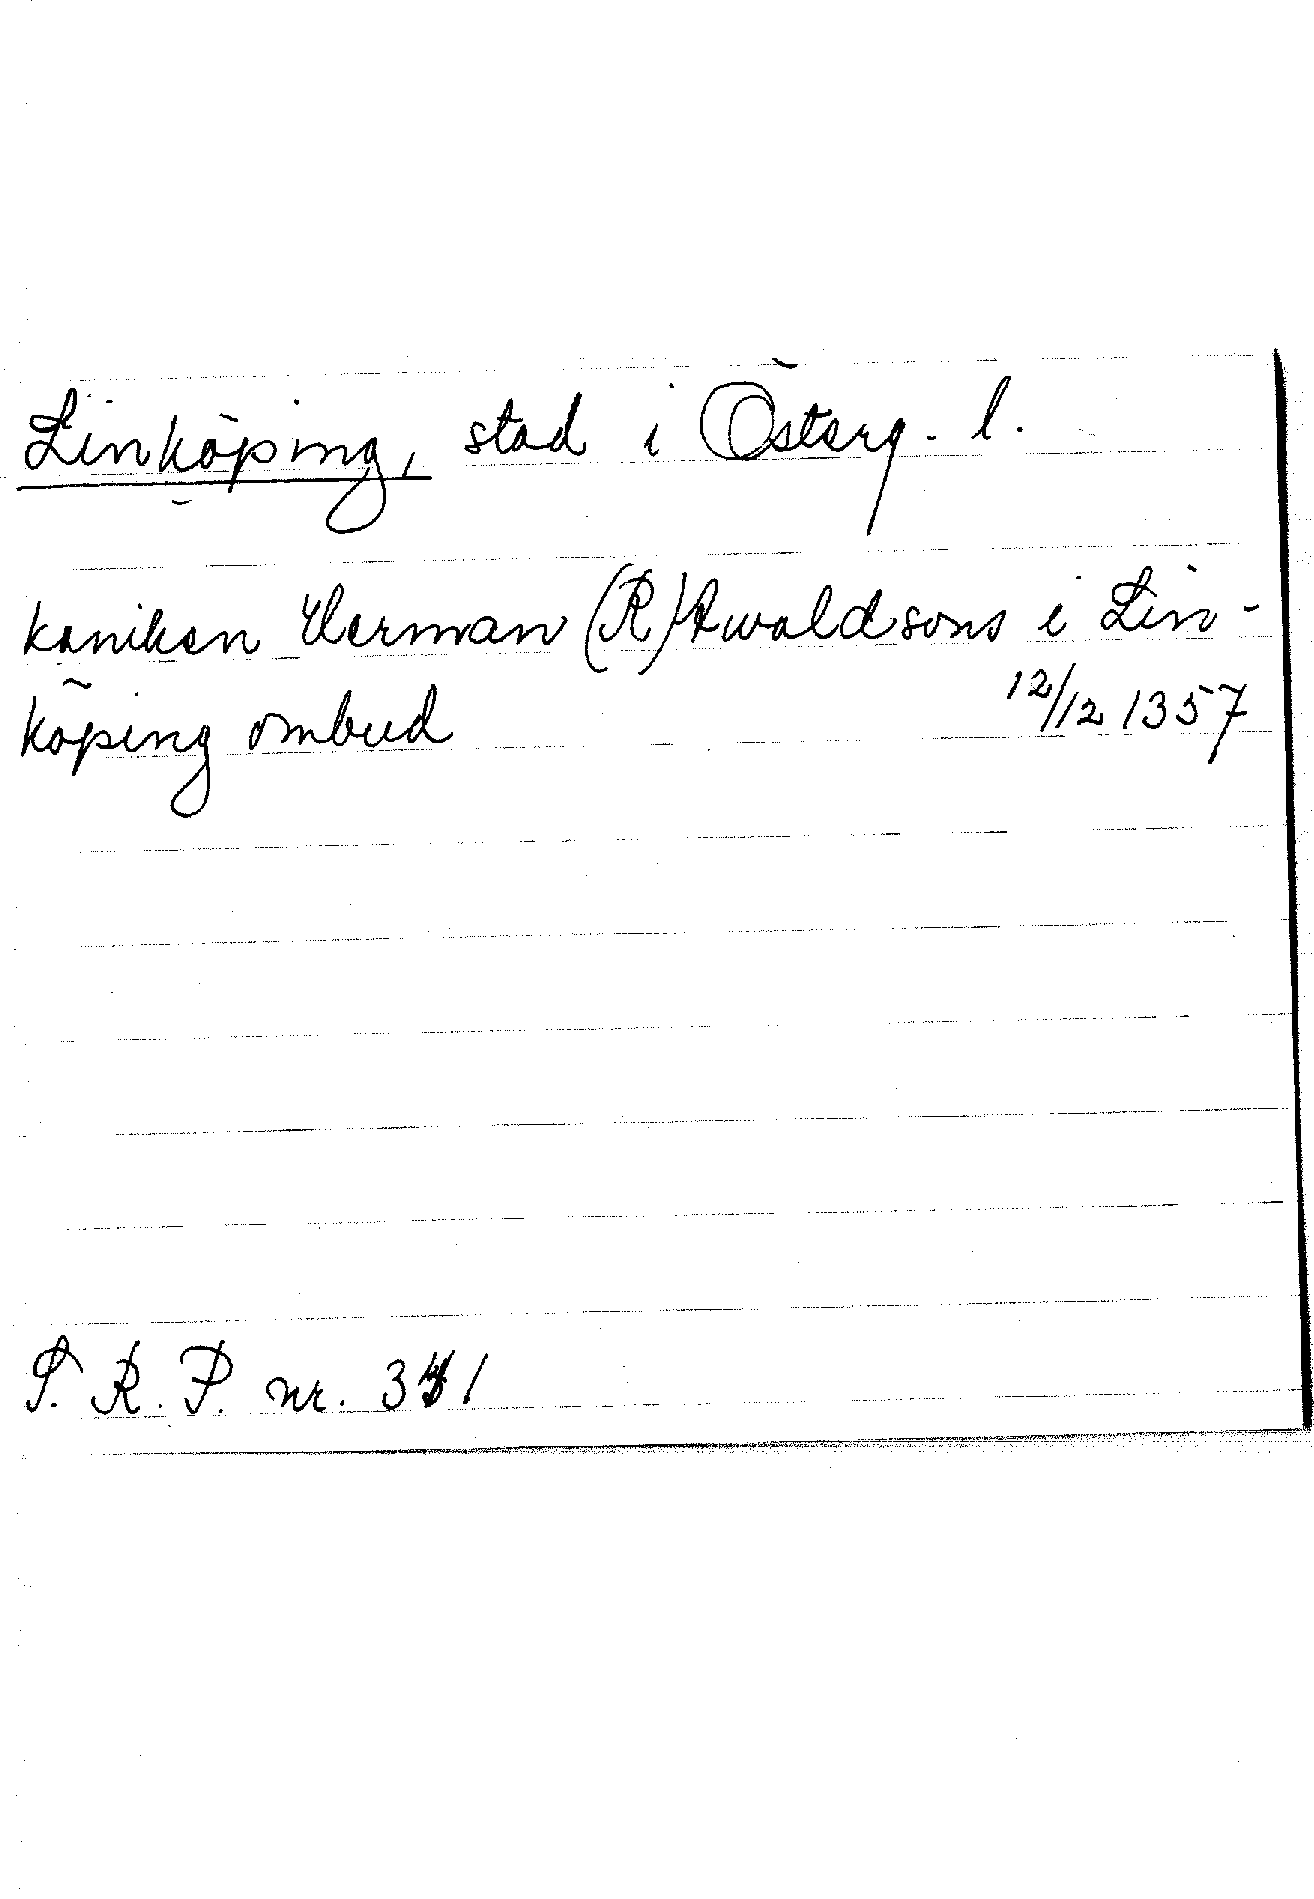 Linköping, stad i Österg. l.
kaniken Herman (R) Awaldsons i Lin-
köping ombud 12/12 1357
S. R. P. nr. 341